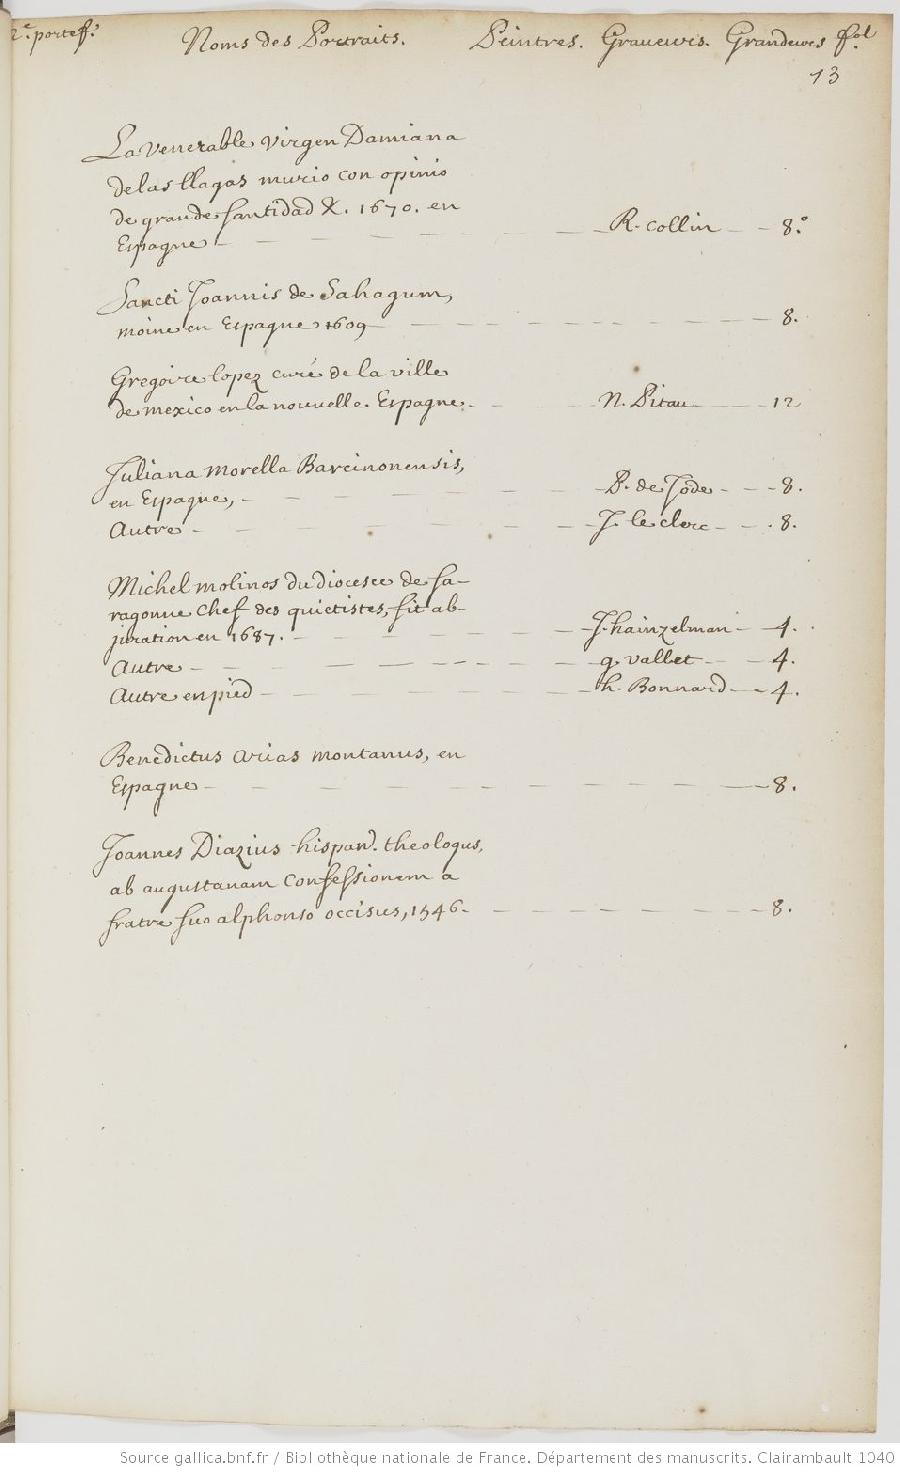 2.e portef.e Noms des Portraits. Peintres. Graveurs. Grandeurs fol.
13
La venerable virgen Damiana
de las llagas murio con opinio
de grande santidad X. 1670. en
Espagne R. Collin 8.o
Sancti Joannis de Sahagum,
moine en Espagne, 1609 8.
Gregoire lopez curé de la ville
de mexico en la nouvelle. Espagne. N. Pitau 12
Juliana Morella Barcinonensis,
en Espagne, P. de Jode 8.
Autre J. le clerc 8.
Michel molinos du diocese de Sa-
ragousse chef des quietistes, fit ab-
juration en 1687. J. hainzelman 4.
Autre g. vallet 4.
Autre en pied h. Bonnard 4.
Benedictus arias montanus, en
Espagne 8.
Joannes Diazius hispan.9 theologus,
ab augustanam Confessionem a
fratre suo alphonso occisus, 1546 8.
Source gallica.bnf.fr / Bibliothèque nationale de France. Département des manuscrits. Clairambault 1040